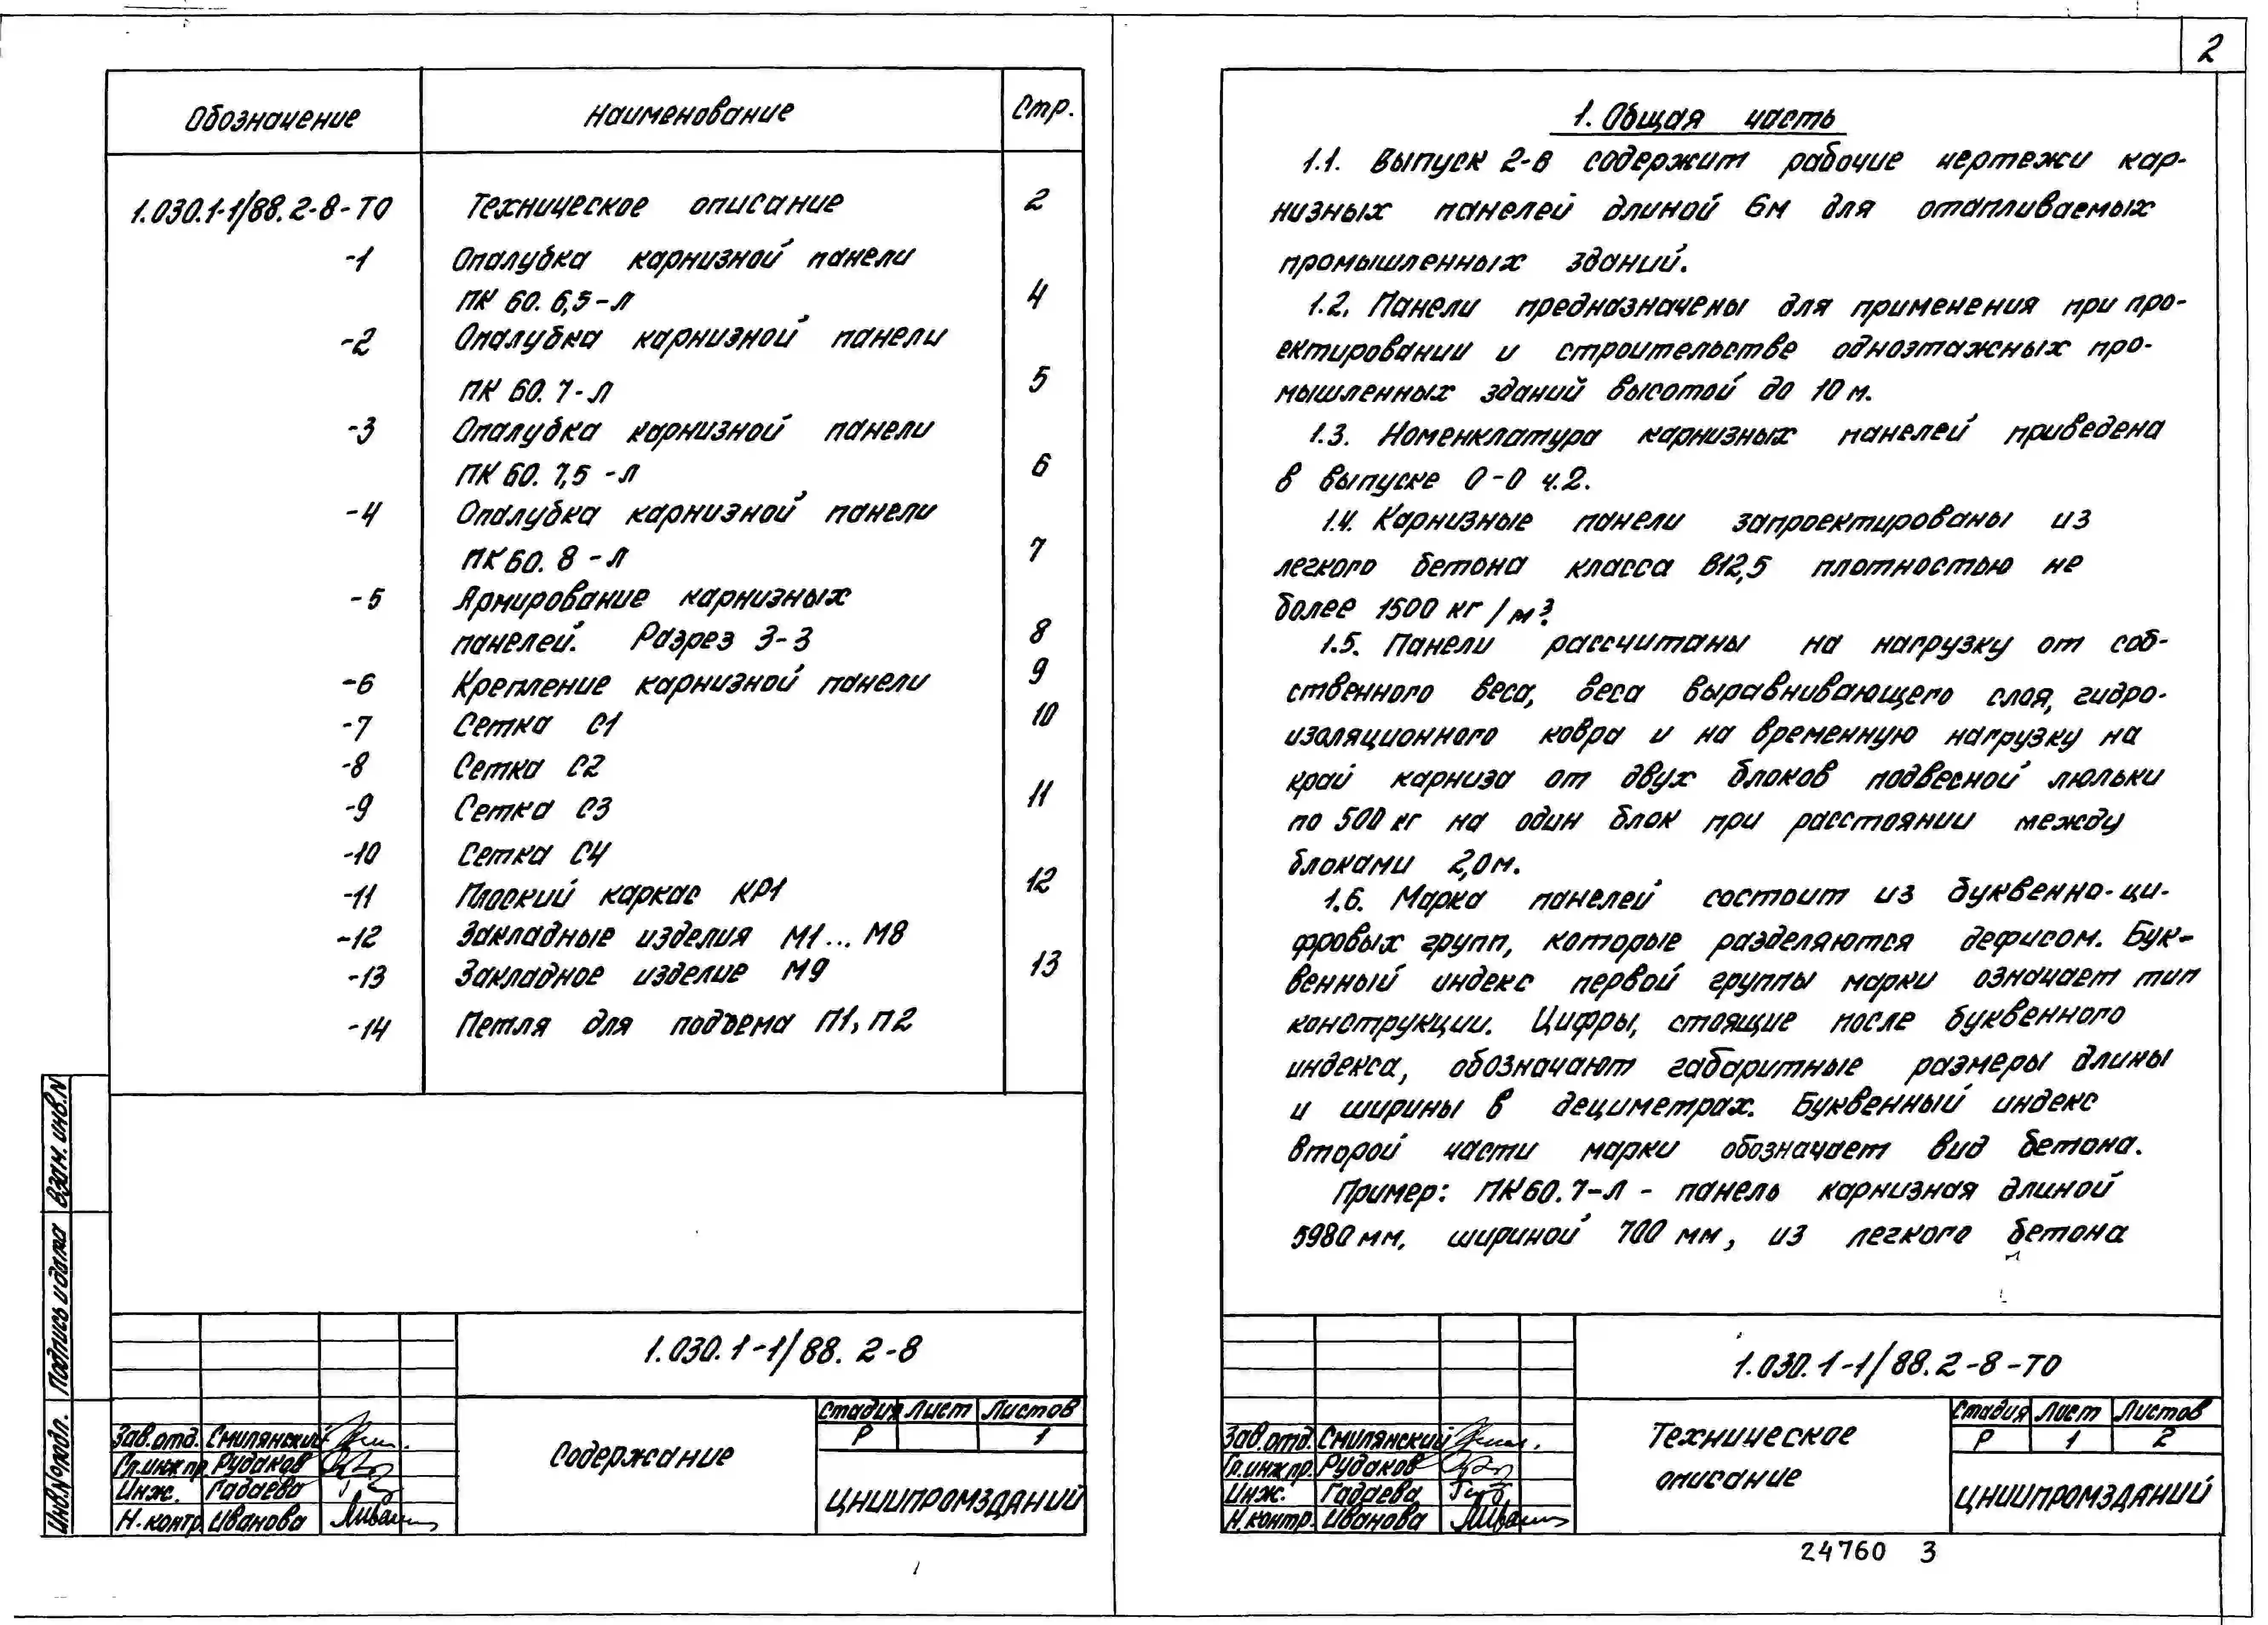 Обозначение Наименование Стр.
1.030.1-1/88.2-8-ТО Техническое описание 2
-1 Опалубка карнизной панели
ПК 60.6,5-Л 4
-2 Опалубка карнизной панели
ПК 60.7-Л 5
-3 Опалубка карнизной панели
ПК 60.7,5-Л 6
-4 Опалубка карнизной панели
ПК 60.8-Л 7
-5 Армирование карнизных
панелей. Разрез 3-3 8
-6 Крепление карнизной панели 9
-7 Сетка С1 10
-8 Сетка С2
-9 Сетка С3 11
-10 Сетка С4
-11 Плоский каркас КР1 12
-12 Закладные изделия М1...М8
-13 Закладное изделие М9 13
-14 Петля для подъема П1, П2
Взам. инв. N
Подпись и дата
Инв. № подл.
1.030.1-1/88. 2-8
Содержание
Стадия Лист Листов
Р 1
ЦНИИПРОМЗДАНИЙ
Зав. отд. Смилянский
Гл. инж. пр. Рудаков
Инж. Гадаева
Н. контр. Иванова
2
1. Общая часть
1.1. Выпуск 2-8 содержит рабочие чертежи кар-
низных панелей длиной 6м для отапливаемых
промышленных зданий.
1.2. Панели предназначены для применения при про-
ектировании и строительстве одноэтажных про-
мышленных зданий высотой до 10 м.
1.3. Номенклатура карнизных панелей приведена
в выпуске 0-0 ч.2.
1.4. Карнизные панели запроектированы из
легкого бетона класса В12,5 плотностью не
более 1500 кг/м³.
1.5. Панели рассчитаны на нагрузку от соб-
ственного веса, веса выравнивающего слоя, гидро-
изоляционного ковра и на временную нагрузку на
край карниза от двух блоков подвесной люльки
по 500 кг на один блок при расстоянии между
блоками 2,0 м.
1.6. Марка панелей состоит из буквенно-ци-
фровых групп, которые разделяются дефисом. Бук-
венный индекс первой группы марки означает тип
конструкции. Цифры, стоящие после буквенного
индекса, обозначают габаритные размеры длины
и ширины в дециметрах. Буквенный индекс
второй части марки обозначает вид бетона.
Пример: ПК60.7-Л - панель карнизная длиной
5980 мм, шириной 700 мм, из легкого бетона
1.030.1-1/88.2-8-ТО
Техническое
описание
Стадия Лист Листов
Р 1 2
ЦНИИПРОМЗДАНИЙ
Зав. отд. Смилянский
Гл. инж. пр. Рудаков
Инж. Гадаева
Н. контр. Иванова
24760 3